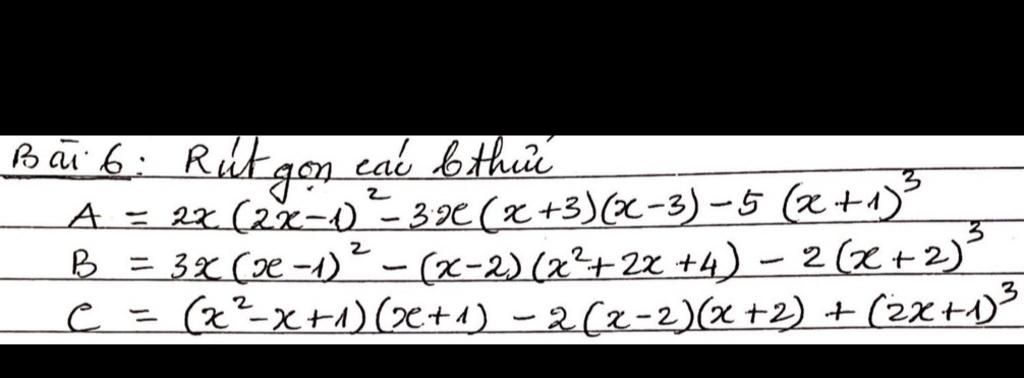 Bài 6: Rút gọn các bthức
A = 2x(2x-1)² - 3x(x+3)(x-3) - 5(x+1)³
B = 3x(x-1)² - (x-2)(x²+2x+4) - 2(x+2)³
C = (x²-x+1)(x+1) - 2(x-2)(x+2) + (2x+1)³